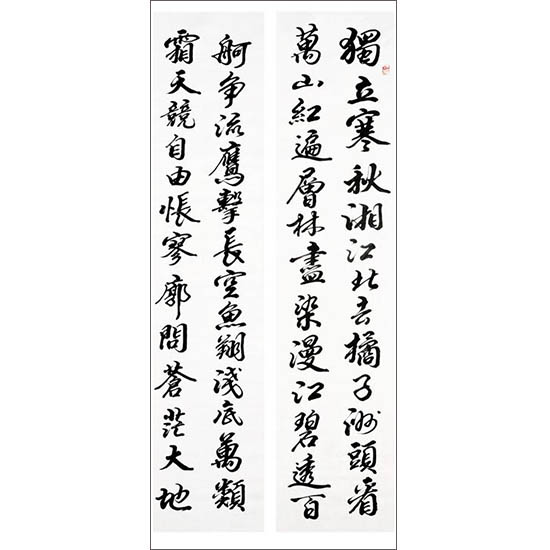 獨立寒秋湘江北去橘子洲頭看
萬山紅遍層林盡染漫江碧透百
舸争流鷹擊長空魚翔淺底萬類
霜天競自由悵寥廓問蒼茫大地